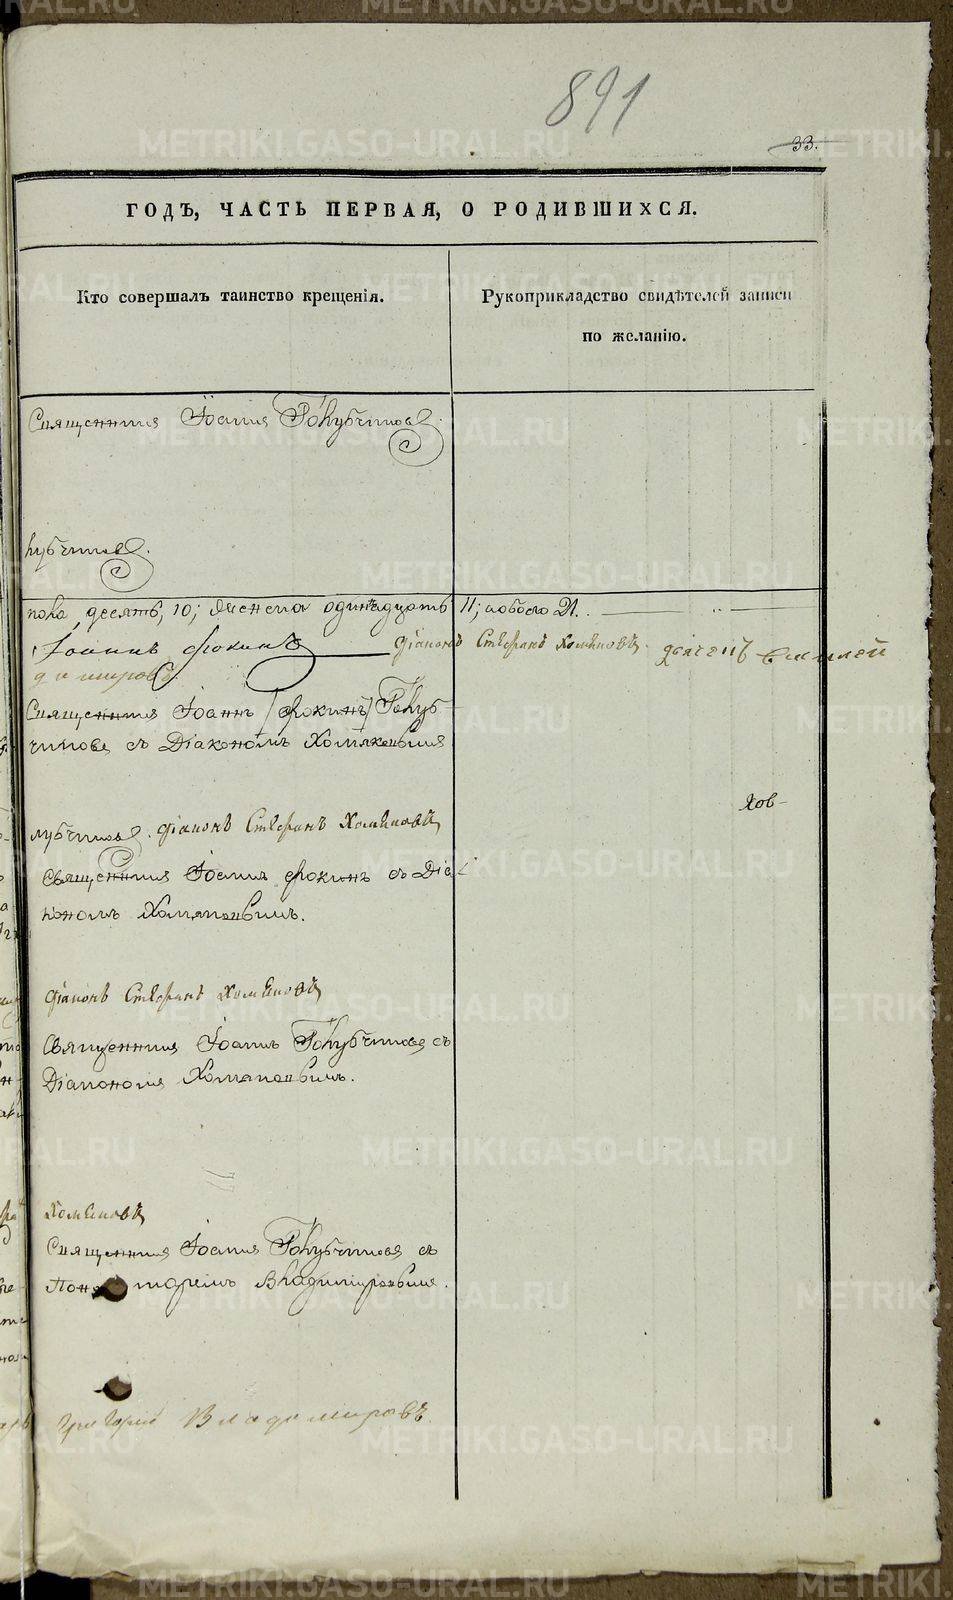 891
33.
ГОДЪ, ЧАСТЬ ПЕРВАЯ, О РОДИВШИХСЯ.
Кто совершалъ таинство крещенія.
Рукоприкладство свидѣтелей записи
по желанію.
Священникъ Іоаннъ Голубчиковъ
лубчиковъ.
пола, десять, 10; женска одинадцать 11; обоего 21.
Іоаннъ Фокинъ Діаконъ Стефанъ Хомяковъ дьячекъ
димировъ
Священникъ Іоаннъ Фокинъ Голуб-
чиковъ съ Діакономъ Хомяковымъ
лубчиковъ. Діаконъ Стефанъ Хомяковъ
Священникъ Іоаннъ Фокинъ съ Діа-
кономъ Хомяковымъ.
Діаконъ Стефанъ Хомяковъ
Священникъ Іоаннъ Голубчиковъ съ
Діакономъ Хомяковымъ.
Хомяковъ
Священникъ Іоаннъ Голубчиковъ съ
Владимировымъ.
Григорій Владимировъ
METRIKI.GASO-URAL.RU